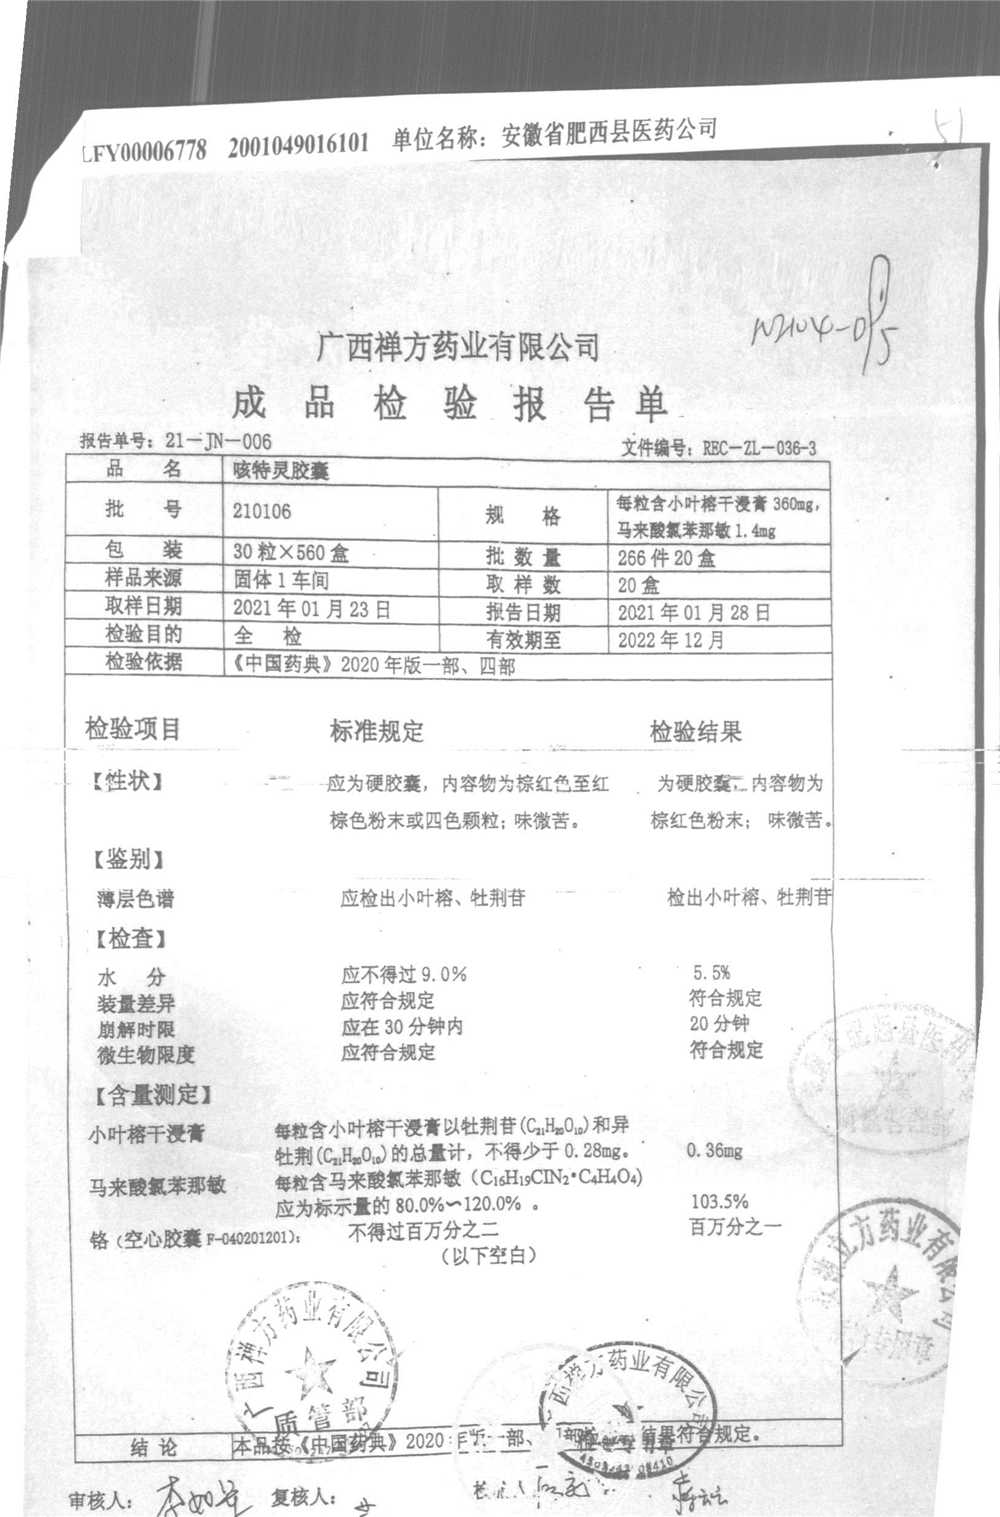 LFY00006778 2001049016101 单位名称：安徽省肥西县医药公司
广西禅方药业有限公司
成品检验报告单
报告单号：21-JN-006 文件编号：REC-ZL-036-3
品 名 咳特灵胶囊
批 号 210106 规 格 每粒含小叶榕干浸膏 360mg，
马来酸氯苯那敏 1.4mg
包 装 30粒×560盒 批数量 266件20盒
样品来源 固体1车间 取样数 20盒
取样日期 2021年01月23日 报告日期 2021年01月28日
检验目的 全 检 有效期至 2022年12月
检验依据 《中国药典》2020年版一部、四部
检验项目 标准规定 检验结果
【性状】 应为硬胶囊，内容物为棕红色至红 为硬胶囊，内容物为
棕色粉末或四色颗粒；味微苦。 棕红色粉末； 味微苦。
【鉴别】
薄层色谱 应检出小叶榕、牡荆苷 检出小叶榕、牡荆苷
【检查】
水 分 应不得过9.0% 5.5%
装量差异 应符合规定 符合规定
崩解时限 应在30分钟内 20分钟
微生物限度 应符合规定 符合规定
【含量测定】
小叶榕干浸膏 每粒含小叶榕干浸膏以牡荆苷(C₂₁H₂₀O₁₀)和异
牡荆(C₂₁H₂₀O₁₀)的总量计，不得少于0.28mg。 0.36mg
马来酸氯苯那敏 每粒含马来酸氯苯那敏（C₁₆H₁₉ClN₂•C₄H₄O₄)
应为标示量的80.0%～120.0% 。 103.5%
铬（空心胶囊 F-040201201）： 不得过百万分之二 百万分之一
（以下空白）
广西禅方药业有限公司
质管部
广西禅方药业有限公司
结 论 本品按《中国药典》2020年版一部、 结果符合规定。
审核人： 复核人：